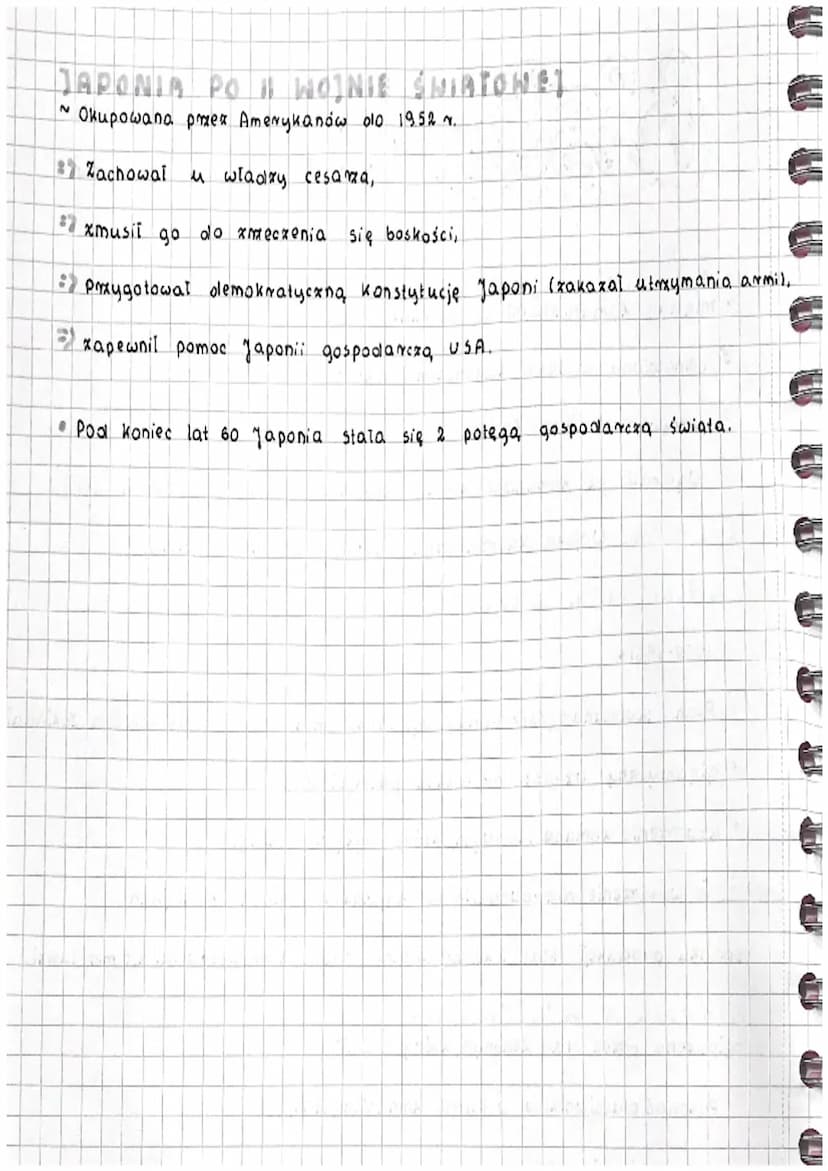 JAPONIA PO II WOJNIE ŚWIATOWEJ
~ Okupowana przez Amerykanów do 1952 r.
:) Zachował u władzy cesarza,
:) zmusił go do zrzeczenia się boskości,
:) przygotował demokratyczną konstytucję Japoni (zakazał utrzymania armii),
:) zapewnił pomoc Japonii gospodarczą USA.
• Pod koniec lat 60 Japonia stała się 2 potęgą gospodarczą świata.